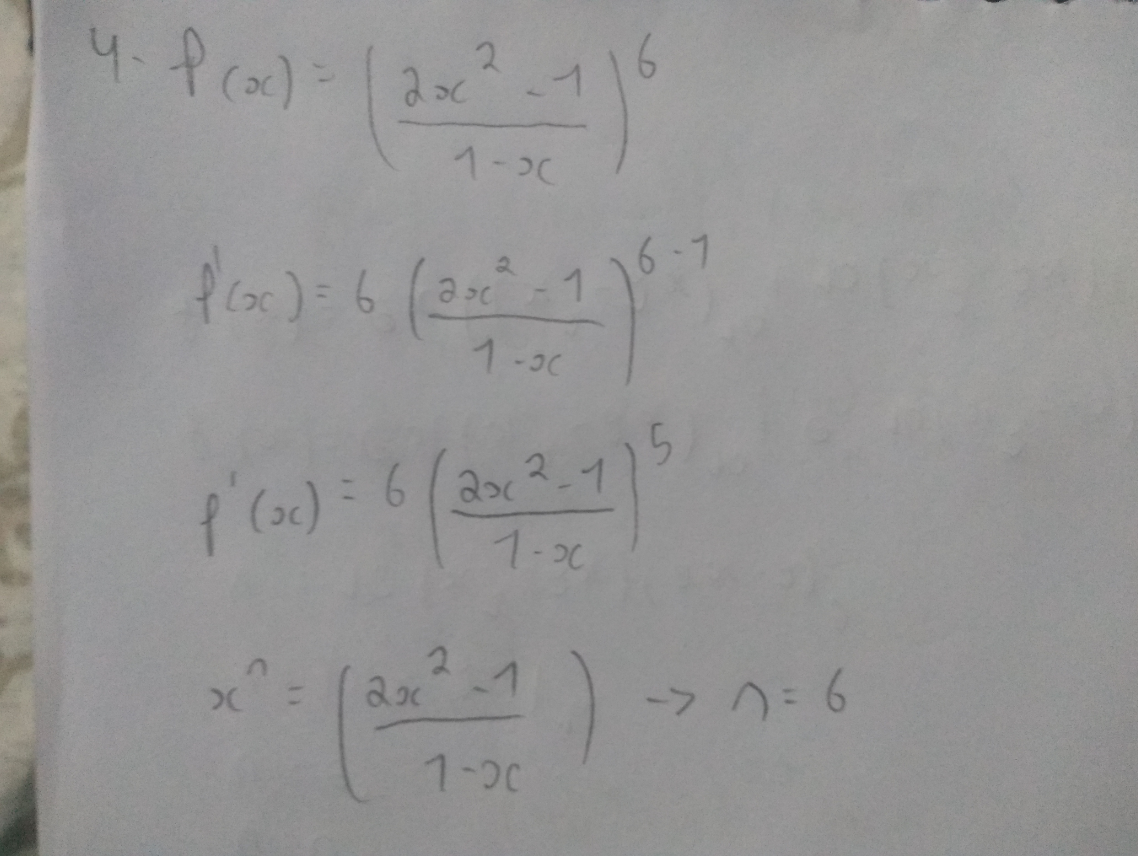 4. f(x) = (2x² - 1 / 1 - x)⁶
f'(x) = 6 (2x² - 1 / 1 - x)⁶⁻¹
f'(x) = 6 (2x² - 1 / 1 - x)⁵
xⁿ = (2x² - 1 / 1 - x) -> n = 6